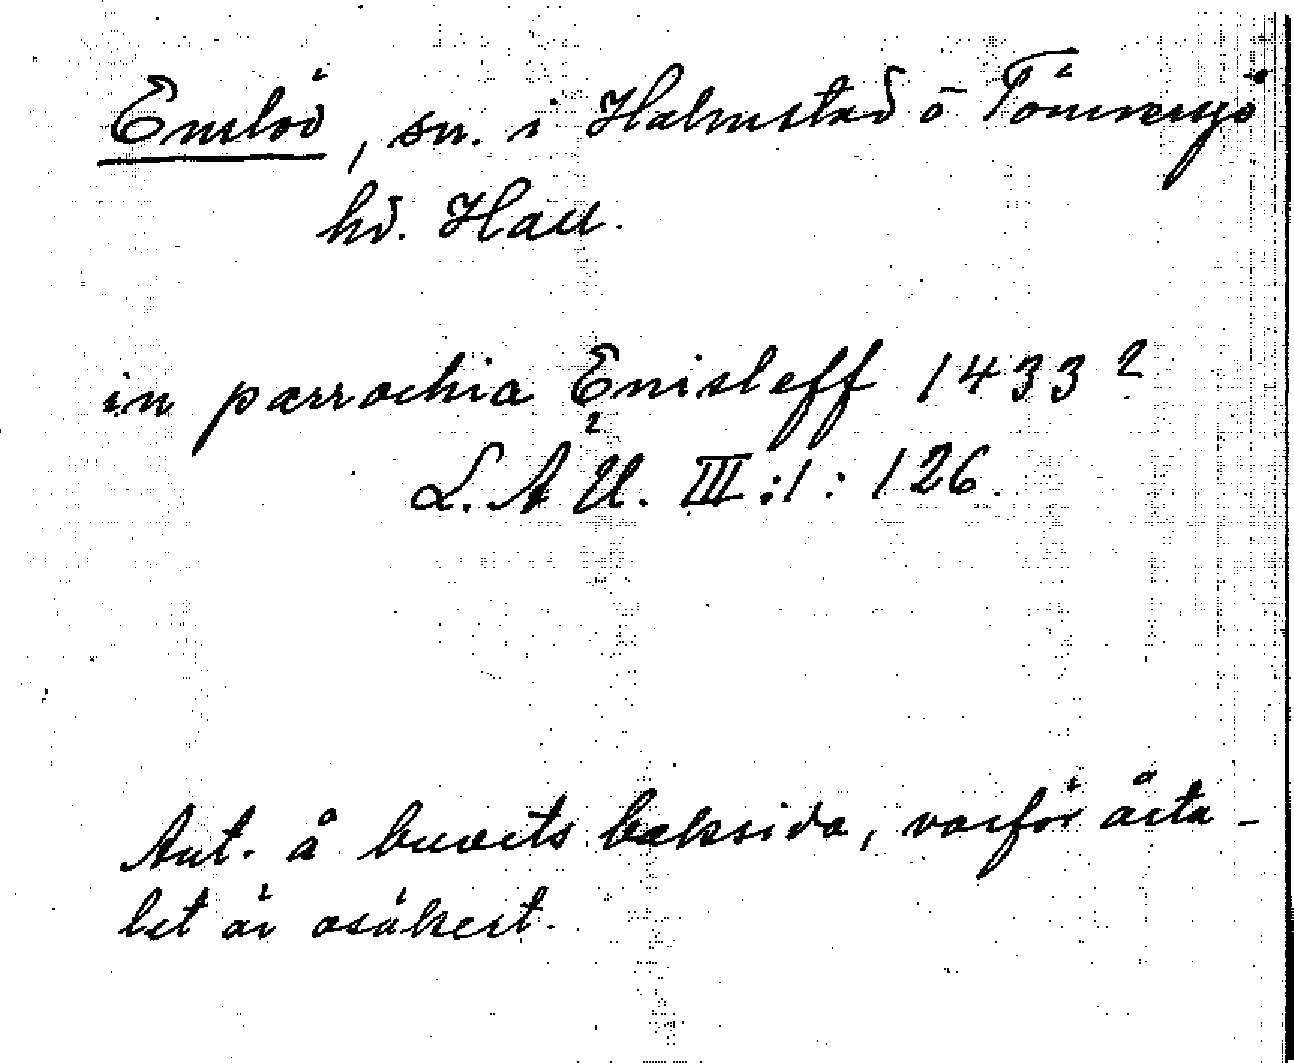 Enslöv, sn. i Halmstad o Tönnersjö
hd. Hall.
in parrochia Enisleff 1433?
?
L.A U. III:1:126.
Ant. å brevets baksida, varför årta-
let är osäkert.